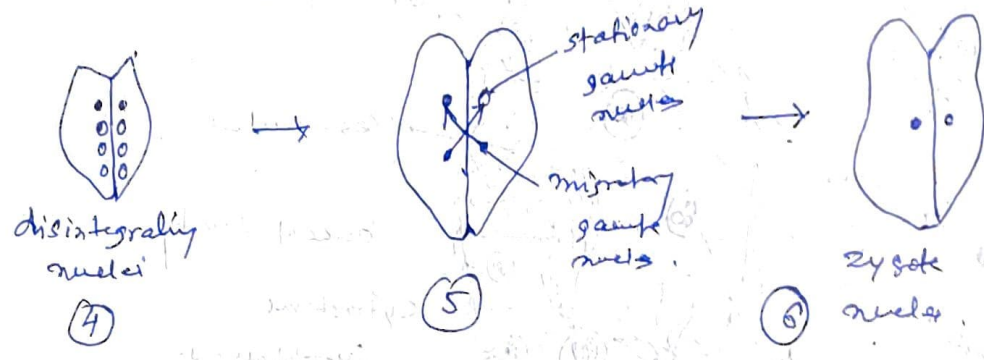 disintegrating
nuclei
4
stationary
gamete
nucleus
migratory
gamete
nucleus.
5
zygote
nuclei
6